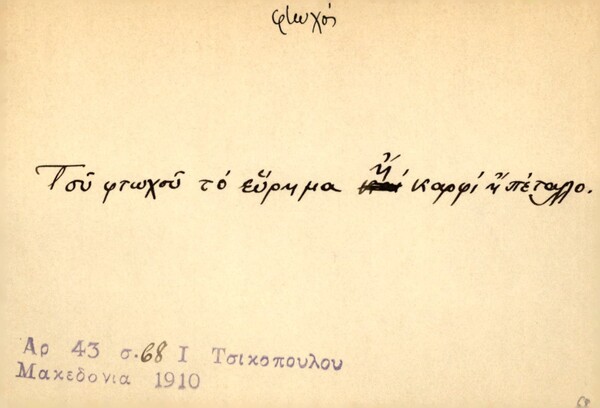 φτωχός
Τοῦ φτωχοῦ τό εὕρημα ἤ καρφί ἤ πέταλο.
Αρ 43 σ.68 Ι Τσικοπουλου
Μακεδονια 1910